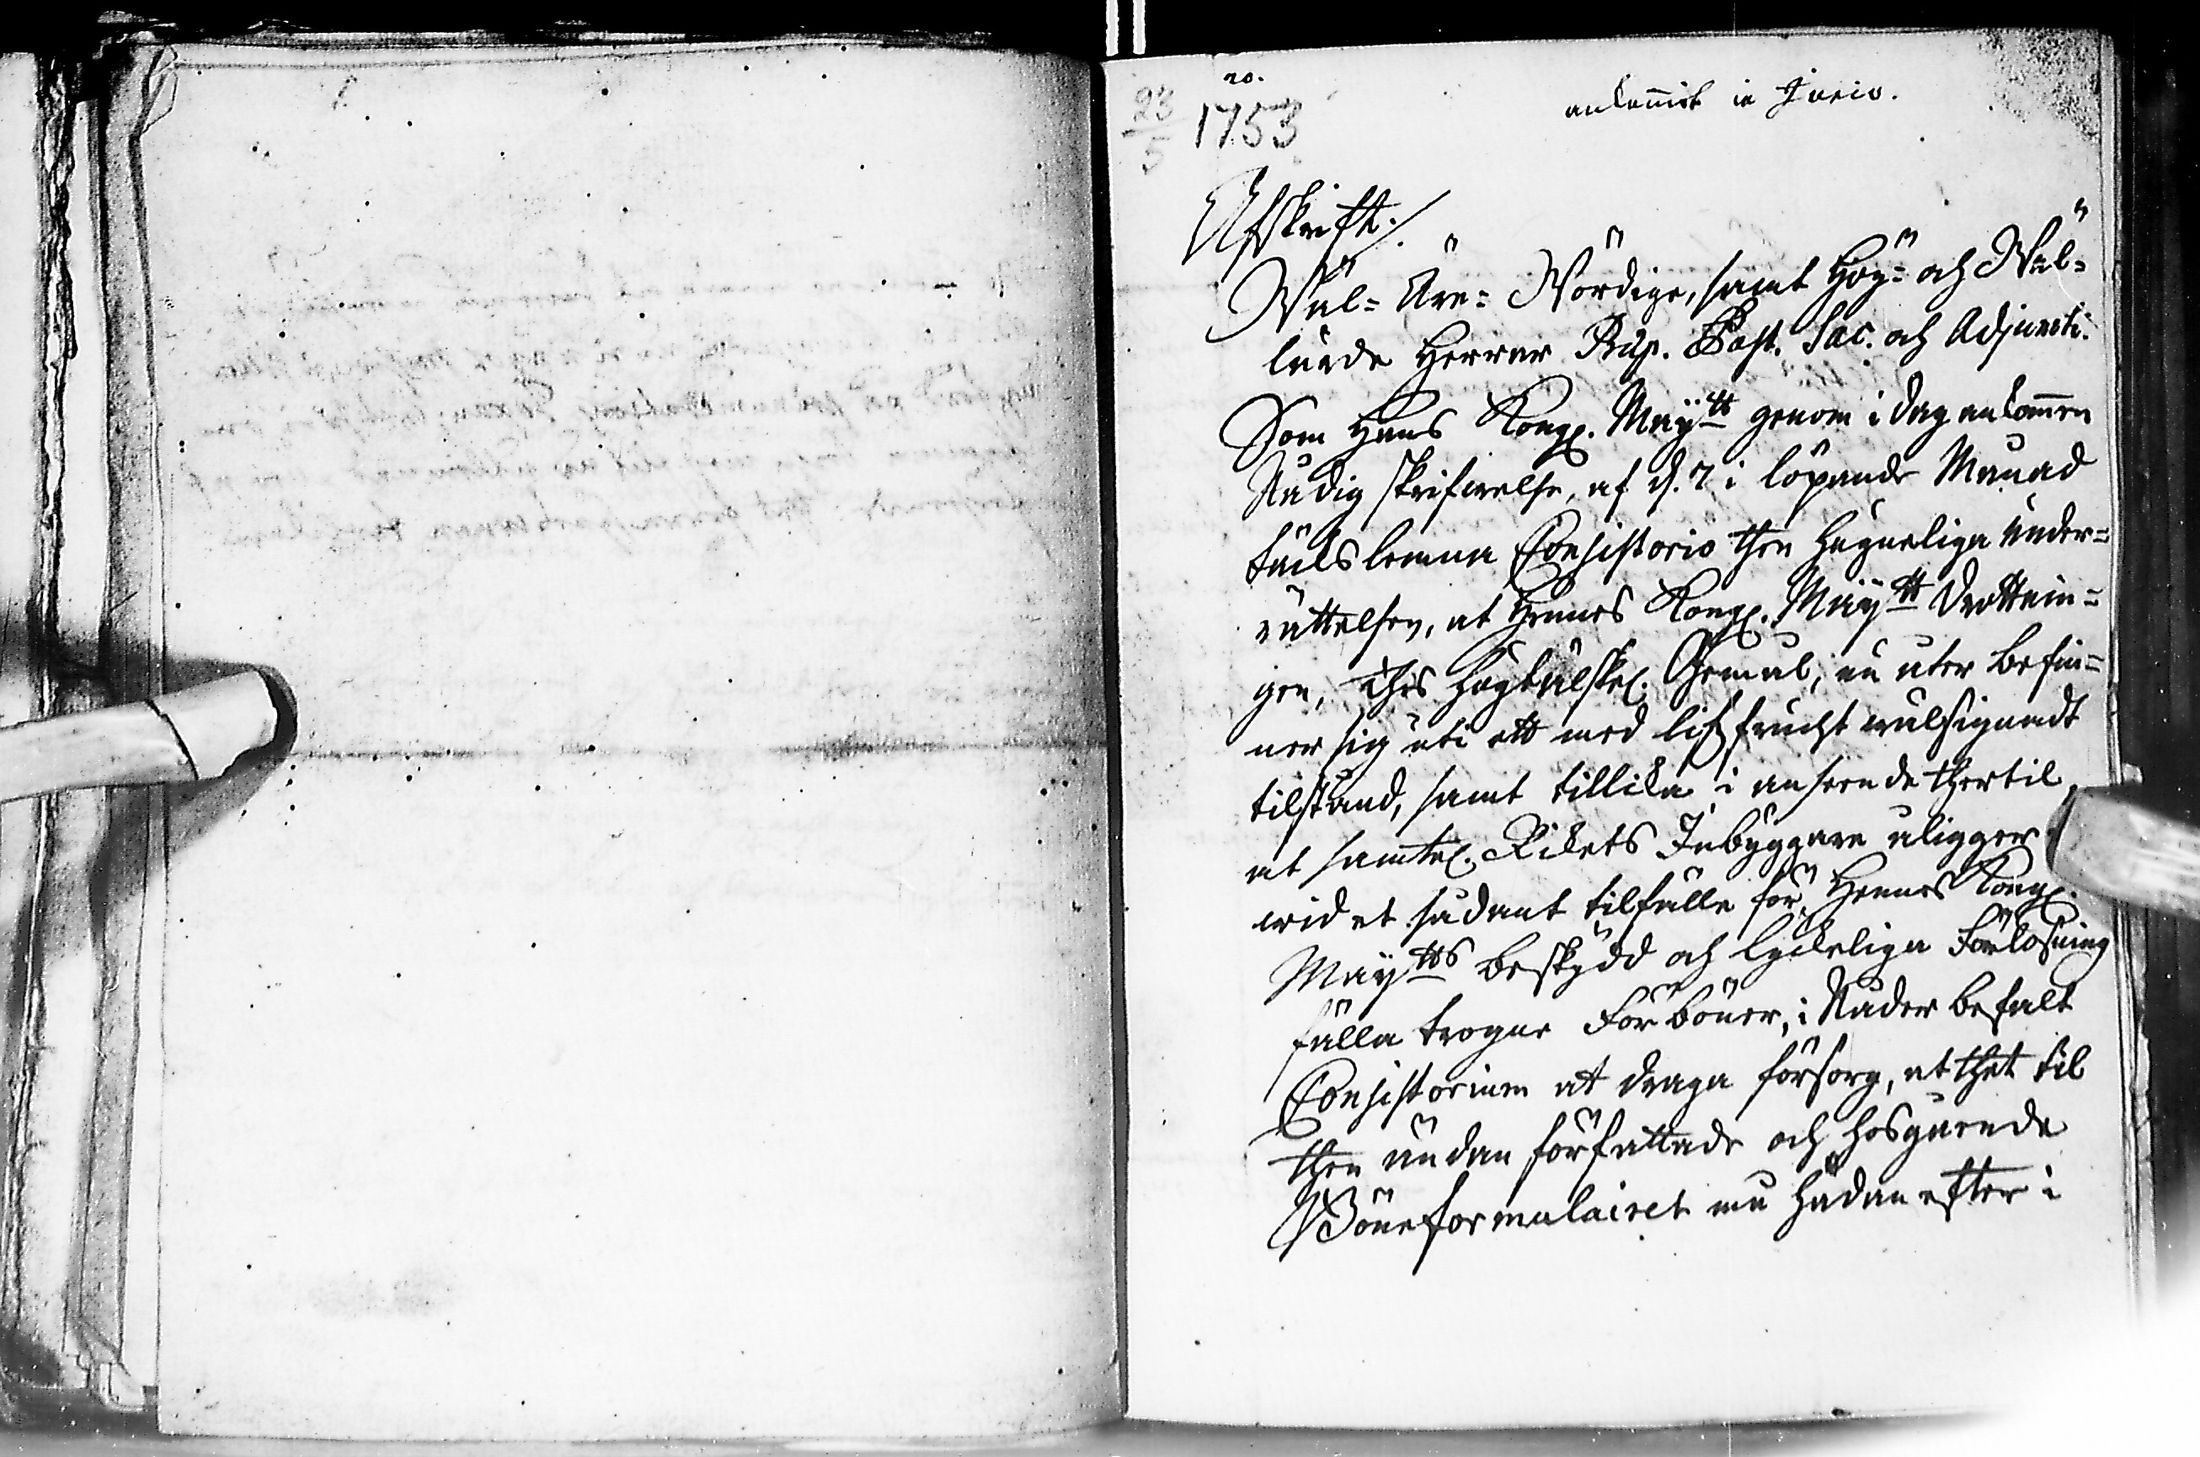 20.
ankommit in Junio.
23/5 1753
Afskrift.
Wäl= Äre= Wördige, samt Hög= och Wäl=
lärde Herrar Præp. Past. Sac. och Adjuncti.
Som Hans Kongl. Maÿtt genom i dag ankommen
Nådig skrifwelse, af d. 7 i löpande Månad
täcks lemna Consistorio then hugneliga under=
rättelsen, at Hennes Kongl. Maÿtt Drottnin=
gen, thes högtälskel. Gemål, nu åter befin=
ner sig uti ett med lifsfrucht wälsignadt
tilstånd, samt tillika i anseende thertil,
at samtel. Rikets Inbyggare åligger
wid et sådant tilfälle för Hennes Kongl.
Maÿtts beskydd och lyckeliga Förlosning
fälla trogne Förböner, i Nåder befalt
Consistorium at draga försorg, at thet til
then ändan författade och hosgående
Böneformulairet må hädanefter i